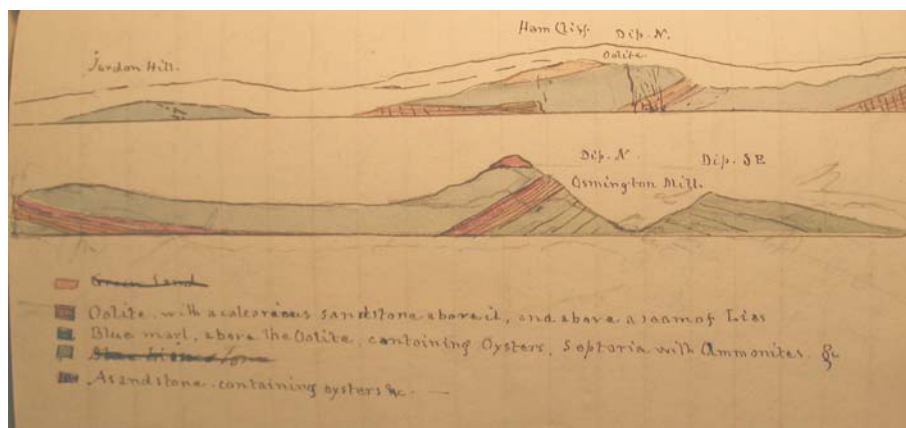 Ham Cliff. Dip. N.
Jordon Hill. Oolite.
Dip. N Dip. SE
Osmington Mill.
Green Sand
Oolite, with a calcareous sandstone above it, and above a seam of Lias
Blue marl, above the Oolite, containing Oysters, Septoria with Ammonites. &c
Blue
A sandstone containing oysters &c. —